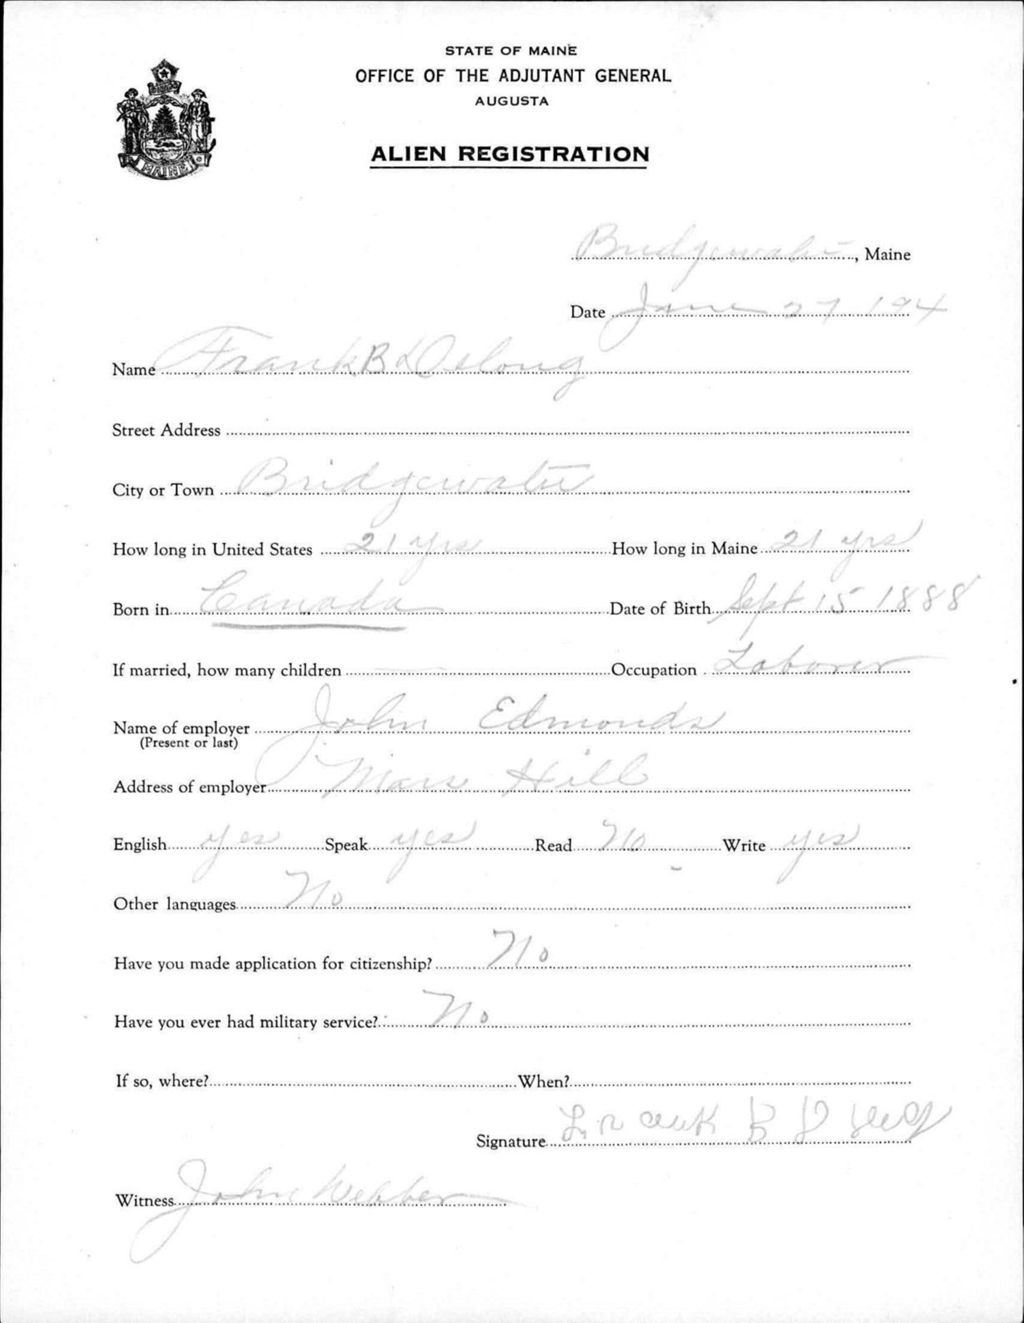 STATE OF MAINE
OFFICE OF THE ADJUTANT GENERAL
AUGUSTA
ALIEN REGISTRATION
MAINE
Bridgewater, Maine
Date June 27 194
Name Frank B Delong
Street Address
City or Town Bridgewater
How long in United States 21 yrs How long in Maine 21 yrs
Born in Canada Date of Birth Sept 15 1888
If married, how many children — Occupation Laborer
Name of employer John Edmonds
(Present or last)
Address of employer Mars Hill
English yes Speak yes Read No Write yes
Other languages No
Have you made application for citizenship? No
Have you ever had military service? No
If so, where? When?
Signature Frank B D
Witness John Webber